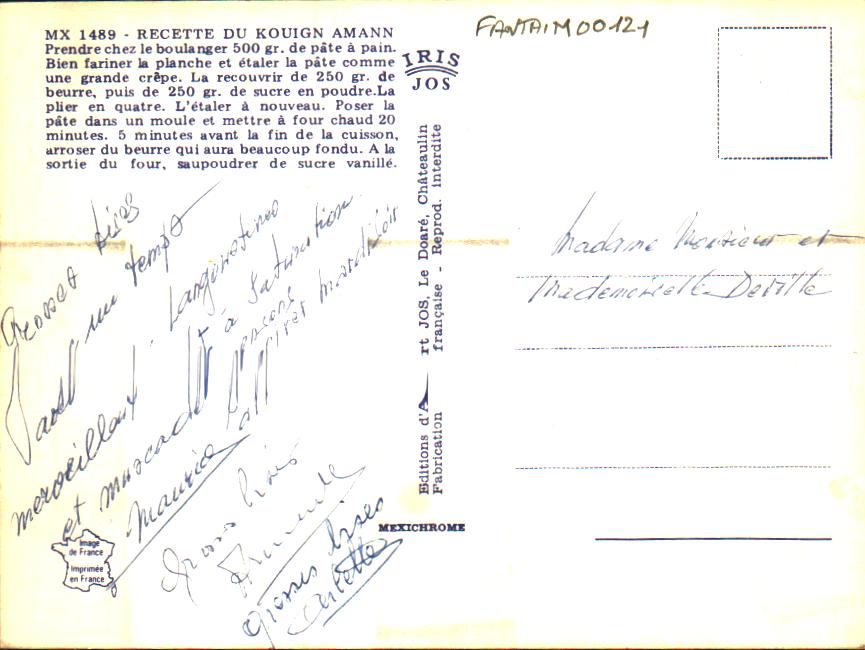 MX 1489 - RECETTE DU KOUIGN AMANN
Prendre chez le boulanger 500 gr. de pâte à pain.
Bien fariner la planche et étaler la pâte comme
une grande crêpe. La recouvrir de 250 gr. de
beurre, puis de 250 gr. de sucre en poudre.La
plier en quatre. L'étaler à nouveau. Poser la
pâte dans un moule et mettre à four chaud 20
minutes. 5 minutes avant la fin de la cuisson,
arroser du beurre qui aura beaucoup fondu. A la
sortie du four, saupoudrer de sucre vanillé.
Grosses bises
Avec un temps
merveilleux Langoustines
et muscadet à saturation
mardi soir
Maurice
Grosses bises
Grosses bises
Arlette
Image
de France
Imprimée
en France
FANTAIM00121
IRIS
JOS
Editions d'Art JOS, Le Doaré, Châteaulin
Fabrication française - Reprod. interdite
MEXICHROME
Madame Monsieur et
Mademoiselle Deville